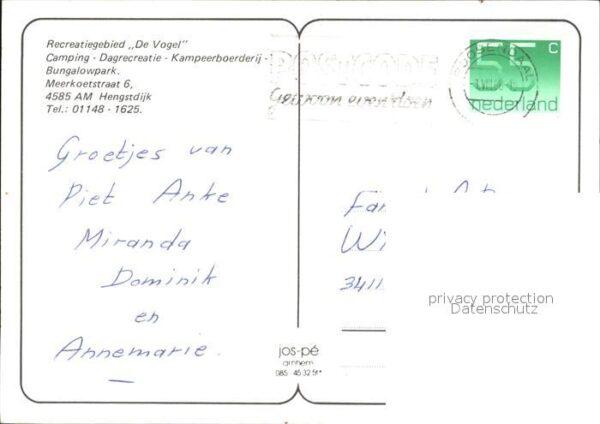 Recreatiegebied „De Vogel”
Camping - Dagrecreatie - Kampeerboerderij -
Bungalowpark.
Meerkoetstraat 6,
4585 AM Hengstdijk
Tel.: 01148 - 1625.
POSTCODE
Gewoon even doen
55 c
nederland
Groetjes van
Piet Anke
Miranda
Dominik
en
Annemarie.
Fam
Wi
3411
privacy protection
Datenschutz
jos-pé
arnhem